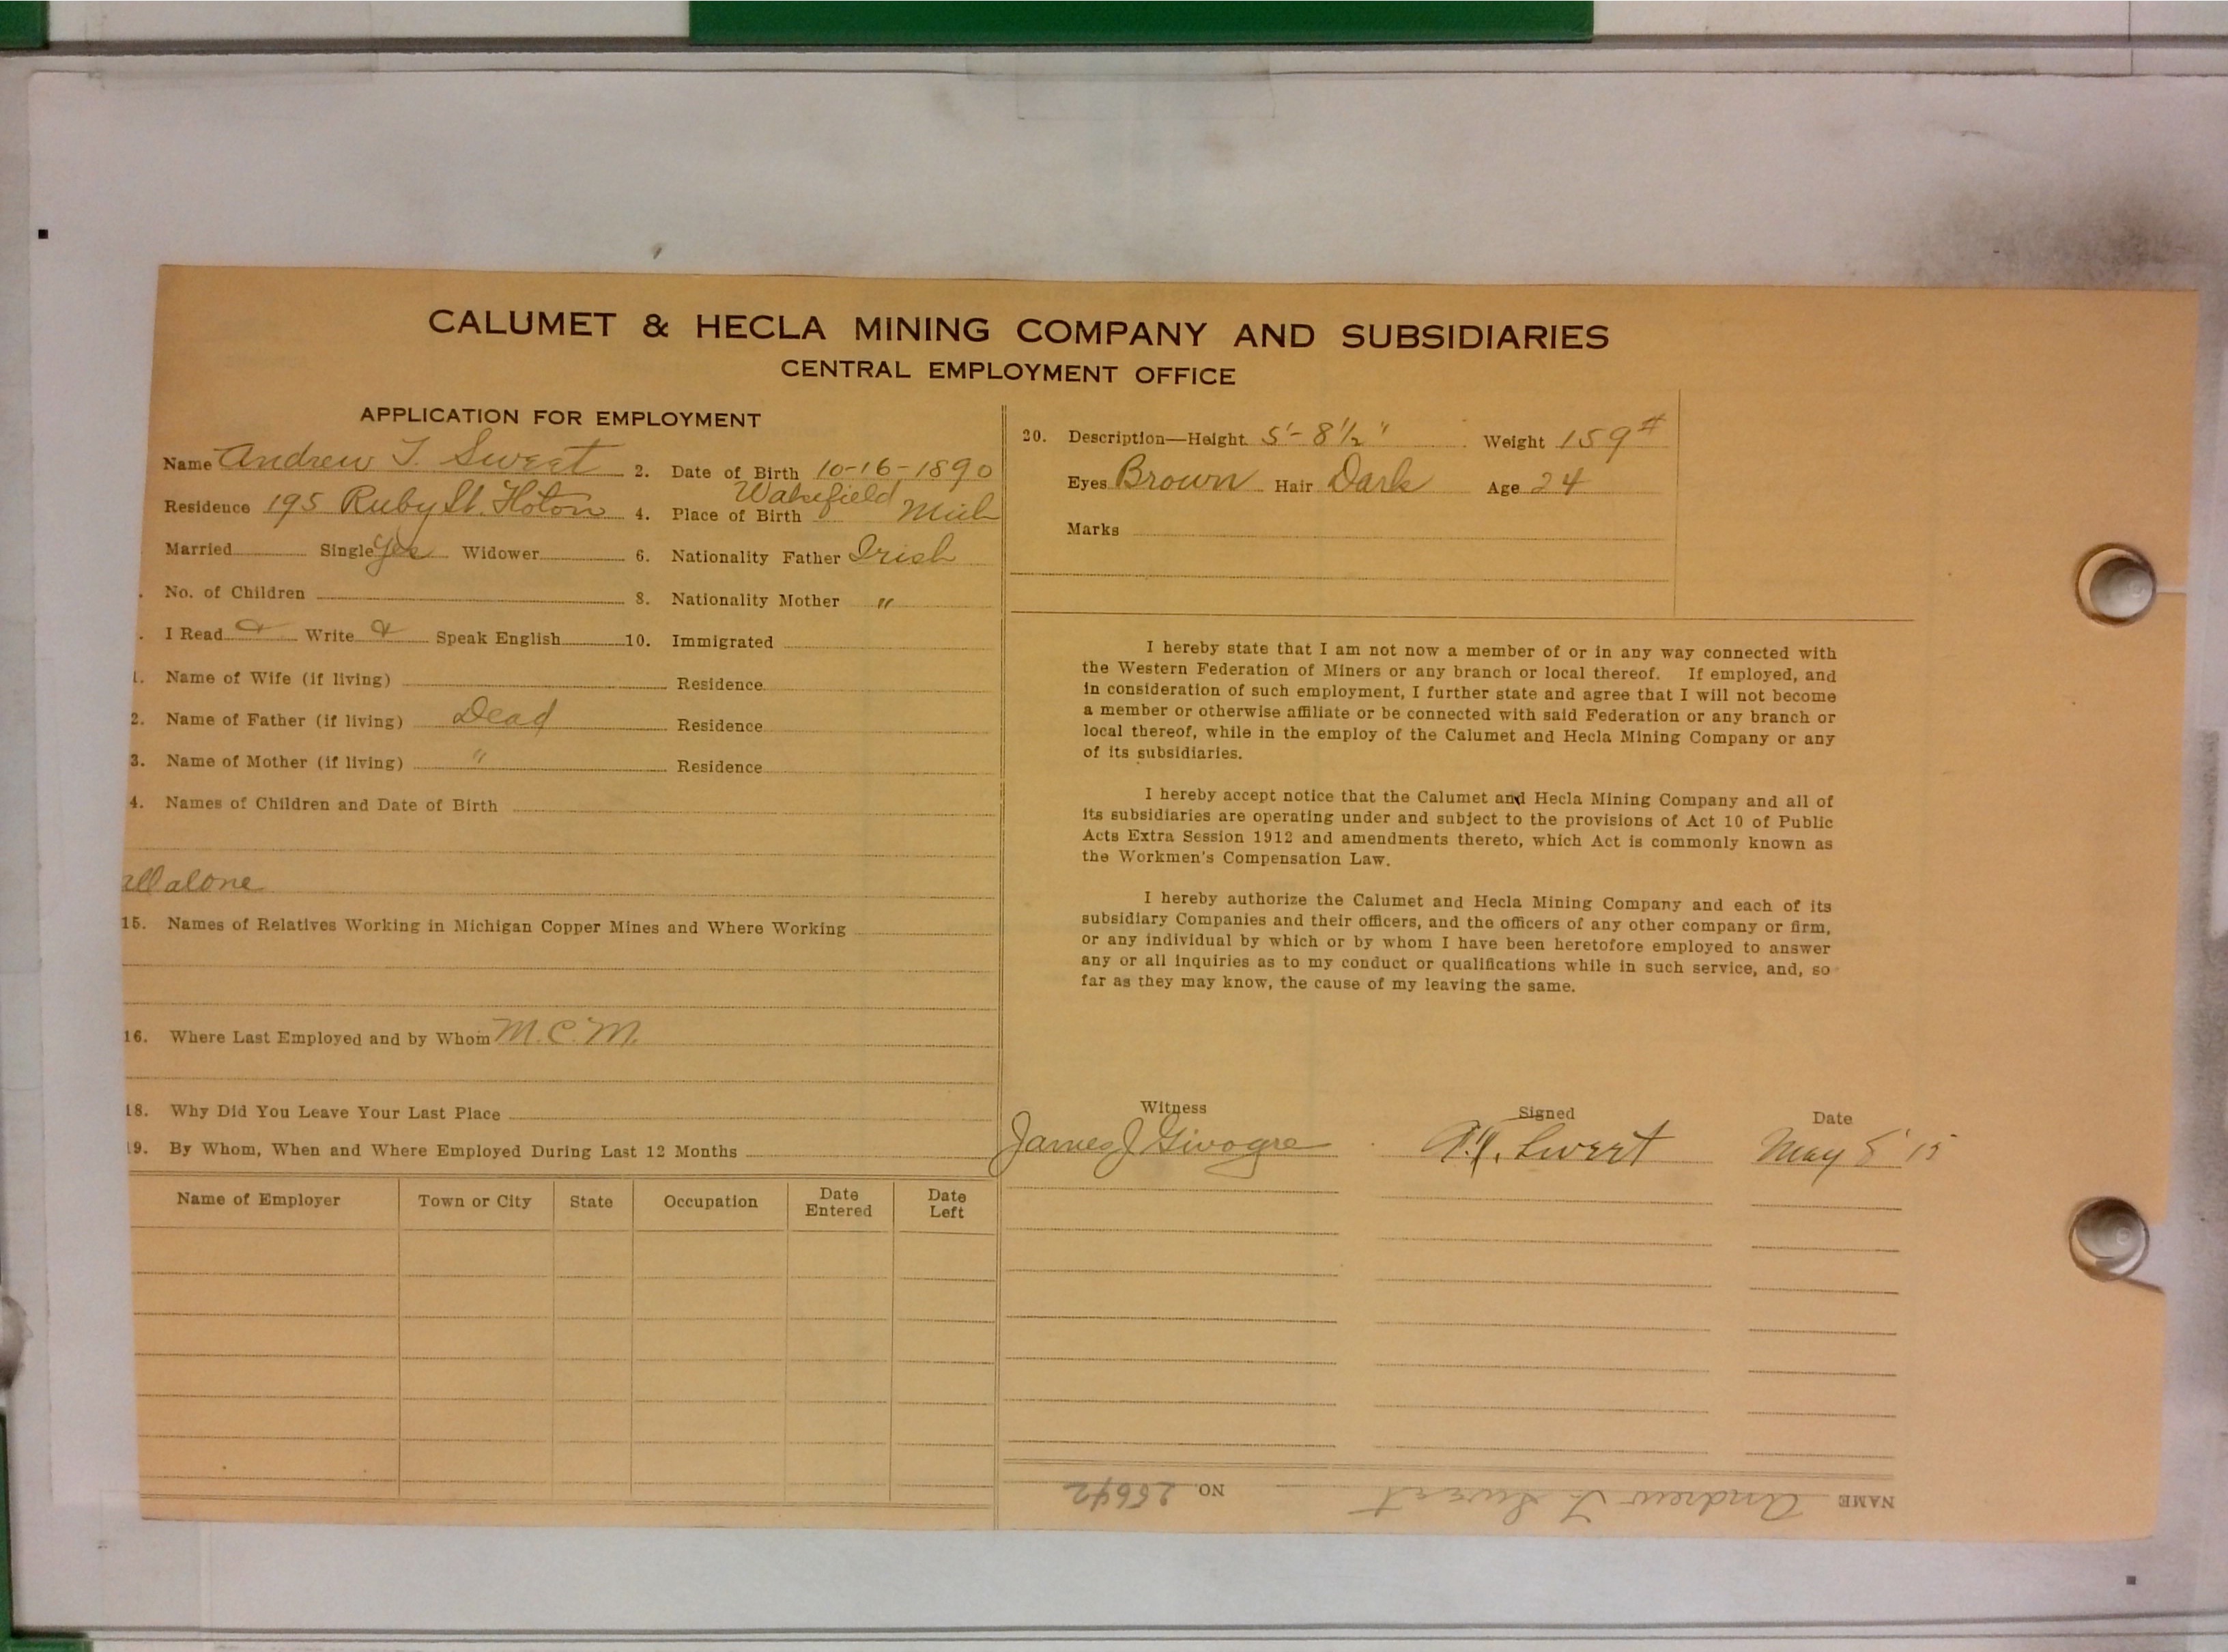 CALUMET & HECLA MINING COMPANY AND SUBSIDIARIES
CENTRAL EMPLOYMENT OFFICE
APPLICATION FOR EMPLOYMENT
Name Andrew T. Sweet 2. Date of Birth 10-16-1890
Residence 195 Ruby St. Hoton 4. Place of Birth Wakefield Mich
Married Single Yes Widower 6. Nationality Father Irish
. No. of Children 8. Nationality Mother "
. I Read Write Speak English 10. Immigrated
1. Name of Wife (if living) Residence
2. Name of Father (if living) Dead Residence
3. Name of Mother (if living) " Residence
4. Names of Children and Date of Birth
all alone
15. Names of Relatives Working in Michigan Copper Mines and Where Working
16. Where Last Employed and by Whom M.C.M.
18. Why Did You Leave Your Last Place
19. By Whom, When and Where Employed During Last 12 Months
Name of Employer Town or City State Occupation Date Entered Date Left
20. Description—Height 5'-8 1/2" Weight 159#
Eyes Brown Hair Dark Age 24
Marks
I hereby state that I am not now a member of or in any way connected with
the Western Federation of Miners or any branch or local thereof. If employed, and
in consideration of such employment, I further state and agree that I will not become
a member or otherwise affiliate or be connected with said Federation or any branch or
local thereof, while in the employ of the Calumet and Hecla Mining Company or any
of its subsidiaries.
I hereby accept notice that the Calumet and Hecla Mining Company and all of
its subsidiaries are operating under and subject to the provisions of Act 10 of Public
Acts Extra Session 1912 and amendments thereto, which Act is commonly known as
the Workmen's Compensation Law.
I hereby authorize the Calumet and Hecla Mining Company and each of its
subsidiary Companies and their officers, and the officers of any other company or firm,
or any individual by which or by whom I have been heretofore employed to answer
any or all inquiries as to my conduct or qualifications while in such service, and, so
far as they may know, the cause of my leaving the same.
Witness Signed Date
James J A.T. Sweet May 8 '15
NAME Andrew T. Sweet NO. 25642